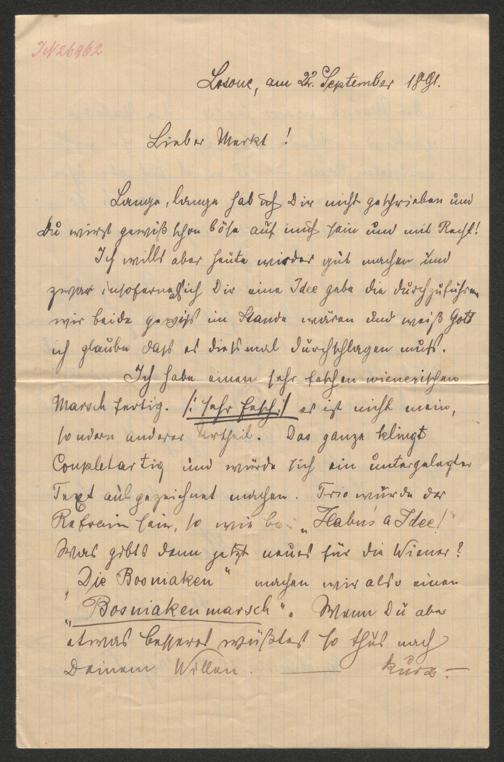 IN 26962
Losonc, am 22. September 1891.
Lieber Merkt!
Lange, lange hab ich Dir nicht geschrieben und
Du wirst gewiß schon böse auf mich sein und mit Recht!
Ich wills aber heute wieder gut machen und
zwar insofern als ich Dir eine Idee gebe die durchzuführen
wir beide gewiss im Stande wären und weiß Gott
ich glaube dass es diesmal durchschlagen muß.
Ich habe einen sehr feschen wienerischen
Marsch fertig. /: sehr fesch :/ es ist nicht mein,
sondern anderer Urtheil. Das ganze klingt
Coupletartig und würde sich ein untergelegter
Text ausgezeichnet machen. Trio würde der
Refrain sein, so wie bei „Habn's a Idee!"
Was gibts denn jetzt neues für die Wiener?
„Die Bosniaken" machen wir also einen
„Bosniakenmarsch". Wenn Du aber
etwas besseres wüßtest so thus nach
Deinem Willen. Kurz –